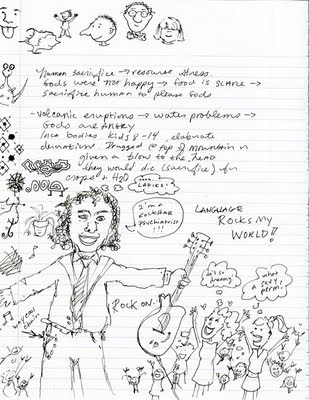 Human sacrifice → resource stress.
Gods were not happy → food is scarce →
sacrifice human to please Gods
- Volcanic eruptions → water problems →
Gods are ANGRY
Inca bodies kids 8-14 elaborate
decorations. Drugged @ top of mountain or
given a blow to the head
they would die (sacrifice) for
crops + H2O
LADIES!
I'm a
ROCKSTAR
psychiatrist
!!!
LANGUAGE
ROCKS MY
WORLD!!
ROCK ON.
he's so
dreamy
what a
sexy
perm!